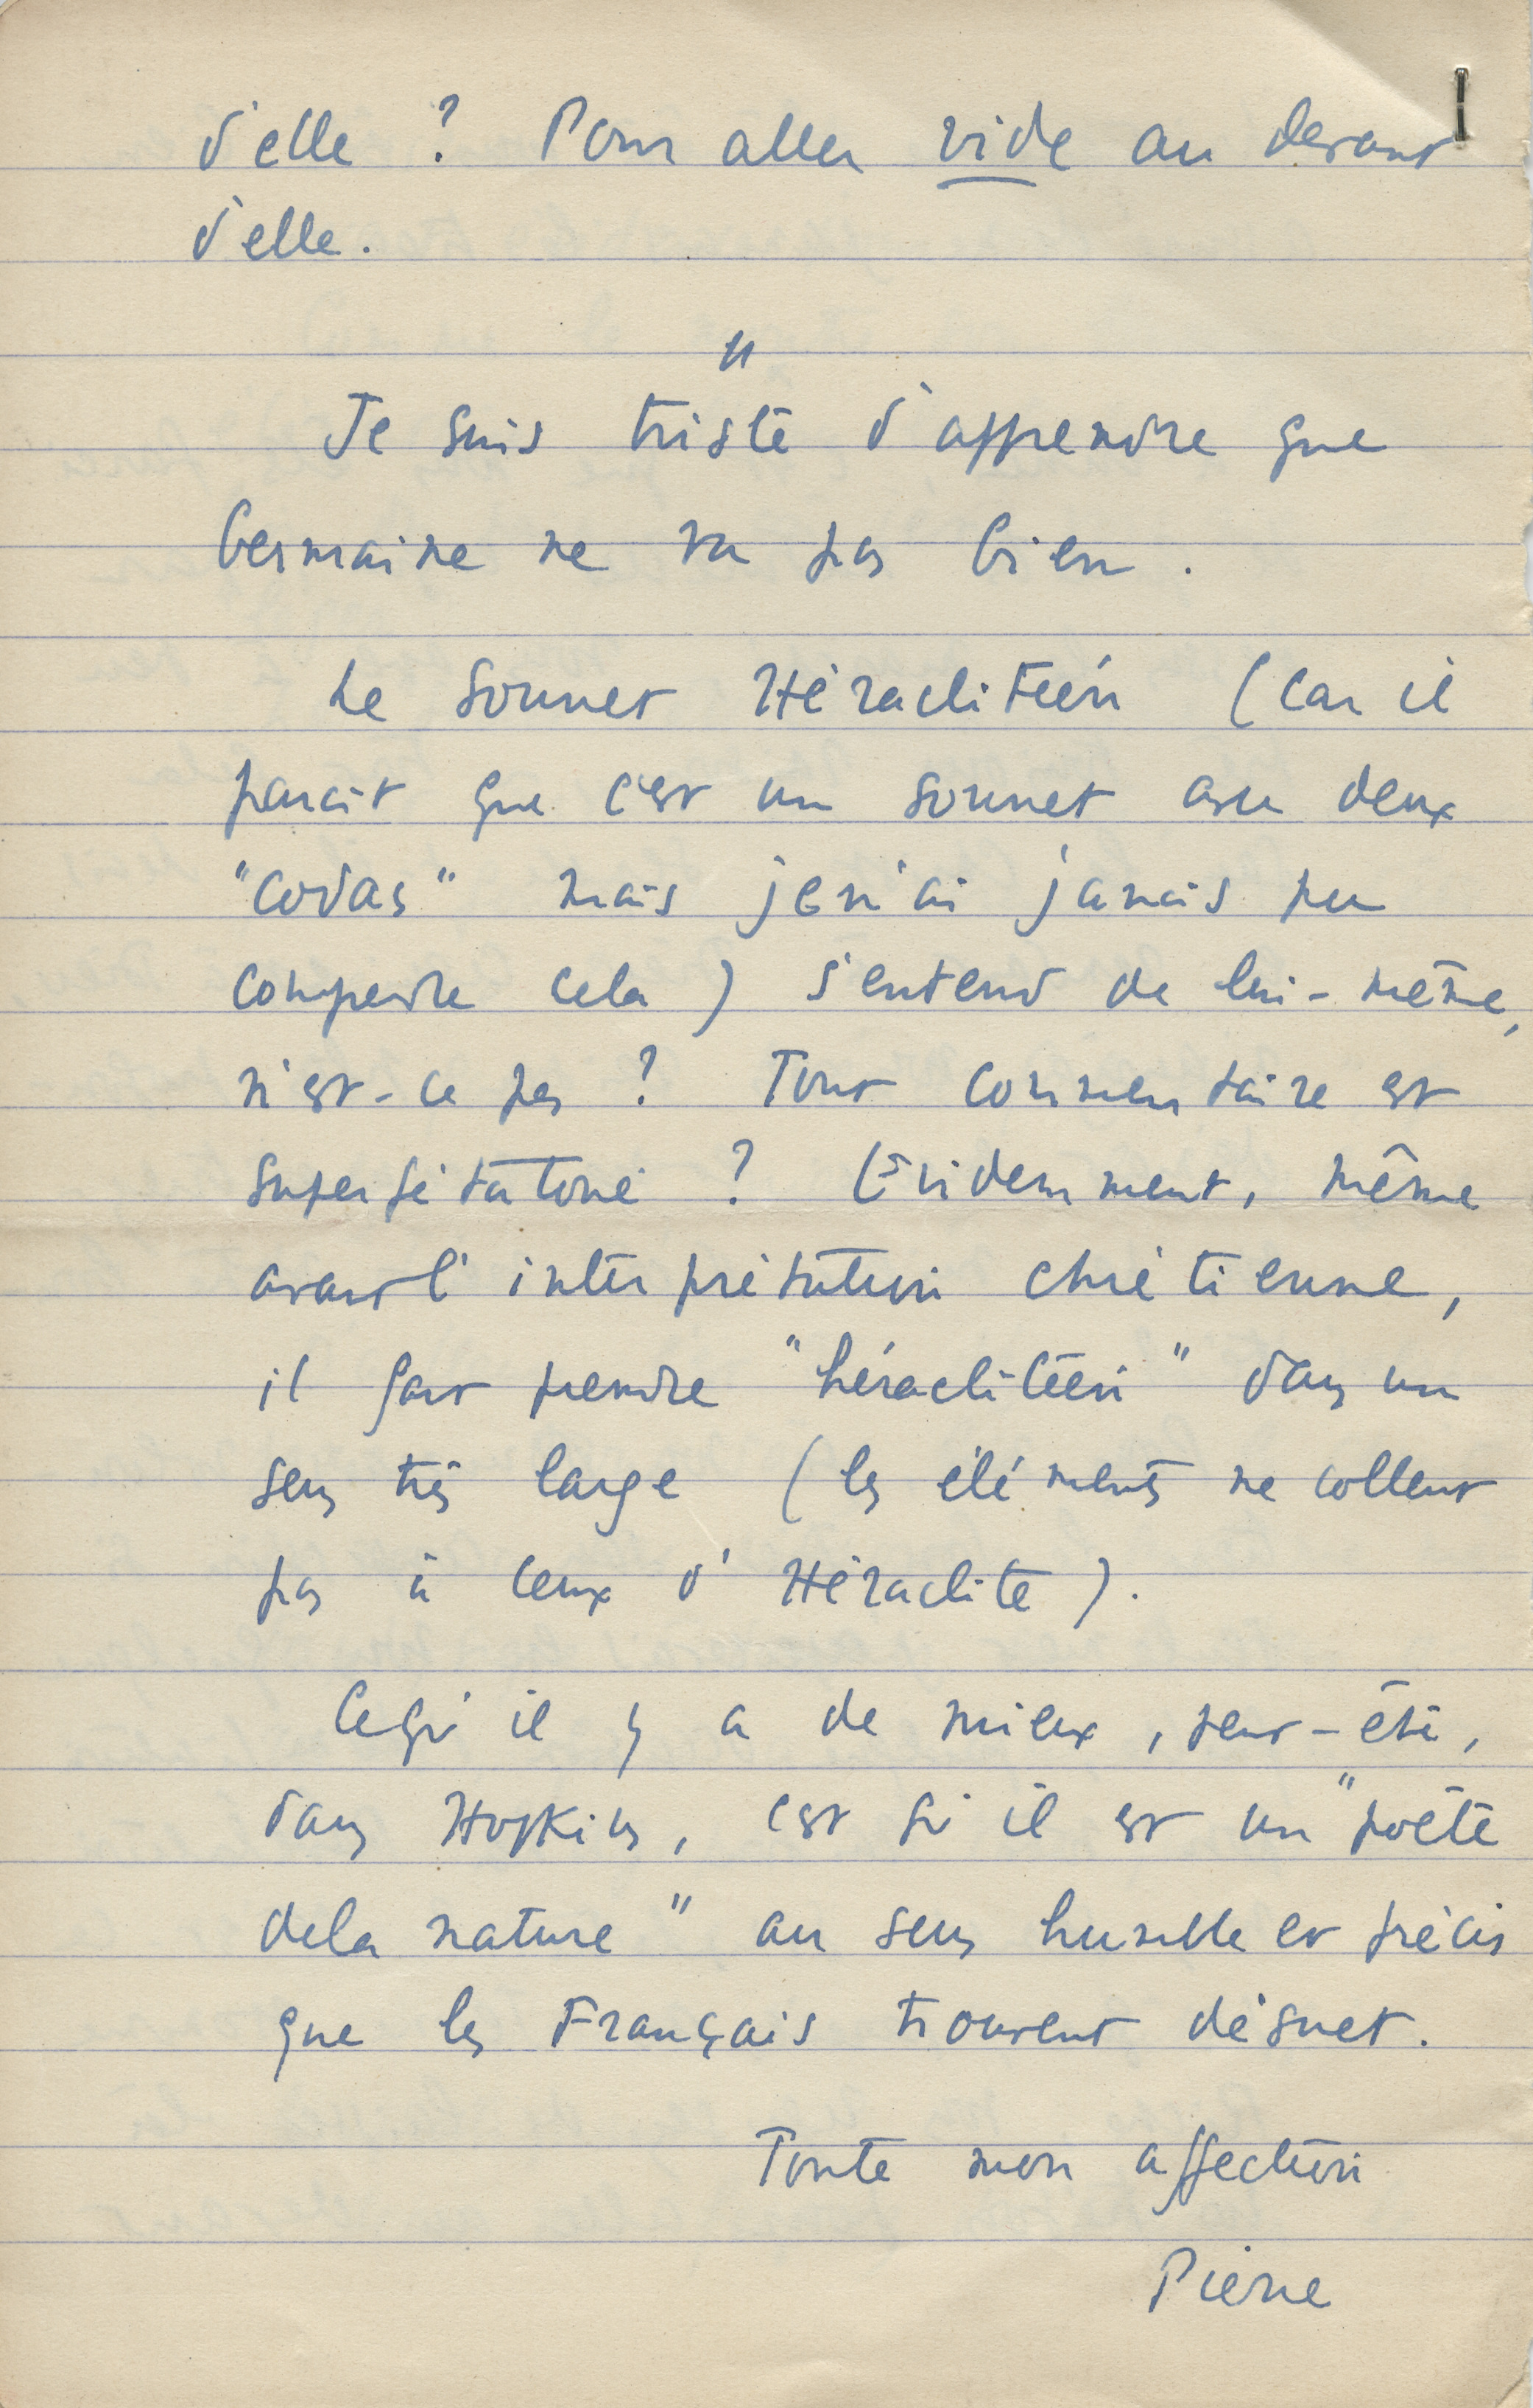 d'elle ? Pour aller vide au devant
d'elle.
"
Je suis triste d'apprendre que
Germaine ne va pas bien.
Le sonnet Héraclitéen (car il
paraît que c'est un sonnet avec deux
"codas" mais je n'ai jamais pu
comprendre cela) s'entend de lui-même,
n'est-ce pas ? Tout commentaire est
superfétatoire ? Évidemment, même
avant l'interprétation chrétienne,
il faut prendre "héraclitéen" dans un
sens très large (les éléments ne collent
pas à ceux d'Héraclite).
Ce qu'il y a de mieux, peut-être,
dans Hopkins, c'est qu'il est un "poète
de la nature" au sens humble et précis
que les Français trouvent désuet.
Toute mon affection
Pierre